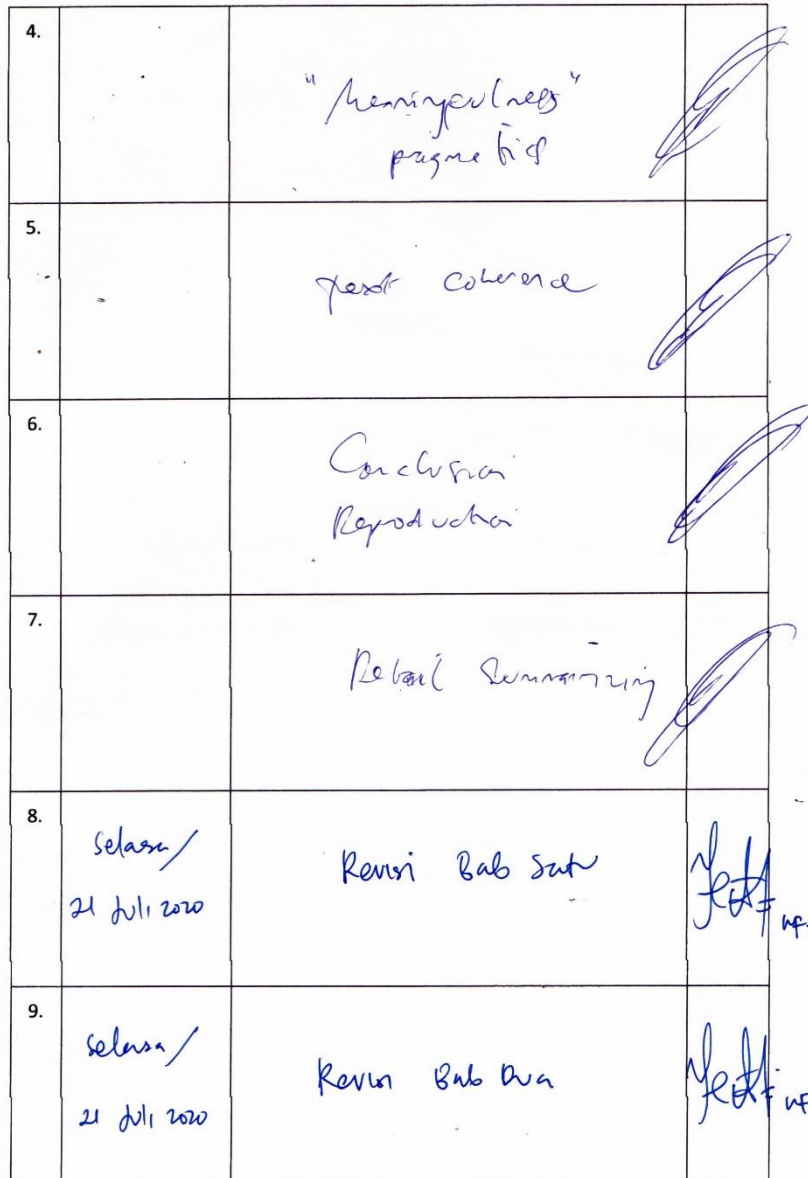 4.
"Meaningfulness"
pragmatics
5.
text coherence
6.
Conclusion
Reproduction
7.
Summarizing
8.
Selasa/
21 Juli 2020
Revisi Bab Satu
9.
Selasa/
21 Juli 2020
Revisi Bab Dua